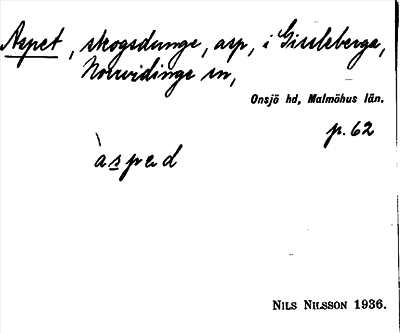 Aspet, skogsdunge, asp, i Gissleberga,
Norrvidinge sn,
Onsjö hd, Malmöhus län.
p. 62
àspəd
NILS NILSSON 1936.